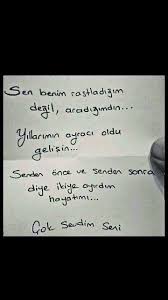 Sen benim rastladığım
değil, aradığımdın...
Yıllarımın ayracı oldu
gelişin...
Senden önce ve senden sonra
diye ikiye ayırdım
hayatımı...
Çok Sevdim Seni